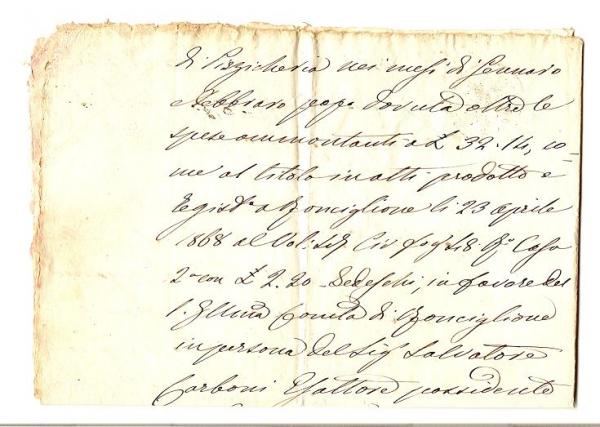 di Pizzicheria nei mesi di Gennaro
e Febbraro pepe dovuta oltre le
spese ammontanti a £ 32.14, co=
me al titolo in atti prodotto e
Regist.o a Ronciglione li 23 Aprile
1868 al Vol: Civ fog 48 R.o Caso
2o con £ 2.20 Dedeschi, in favore del
l'Illma Comtà di Ronciglione
in persona del Sig Salvatore
Carboni Esattore possidente